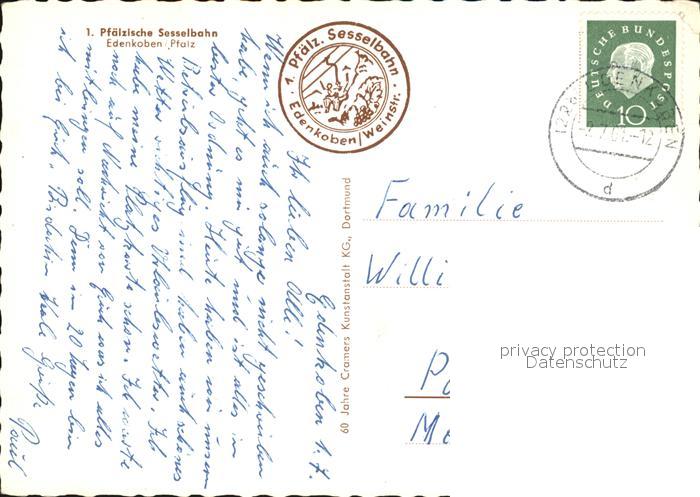 1. Pfälzische Sesselbahn
Edenkoben/Pfalz
1. Pfälz. Sesselbahn
Edenkoben/Weinstr.
DEUTSCHE BUNDESPOST
10
d
Edenkoben 1.7.
Ihr lieben Alle!
Wenn ich auch solange nicht geschrieben
habe, geht es mir gut und ist alles in
bester Ordnung. Heute haben wir unseren
und haben auch schönes
Wetter, richtiges Urlaubswetter. Ich
habe meine Platzkarte schon. Ich warte
noch auf Nachricht von Euch was ich alles
mitbringen soll. Denn in 20 Tagen bin
ich bei Euch. Grüße
Paul
60 Jahre Cramers Kunstanstalt KG., Dortmund
Familie
Willi
privacy protection
Datenschutz